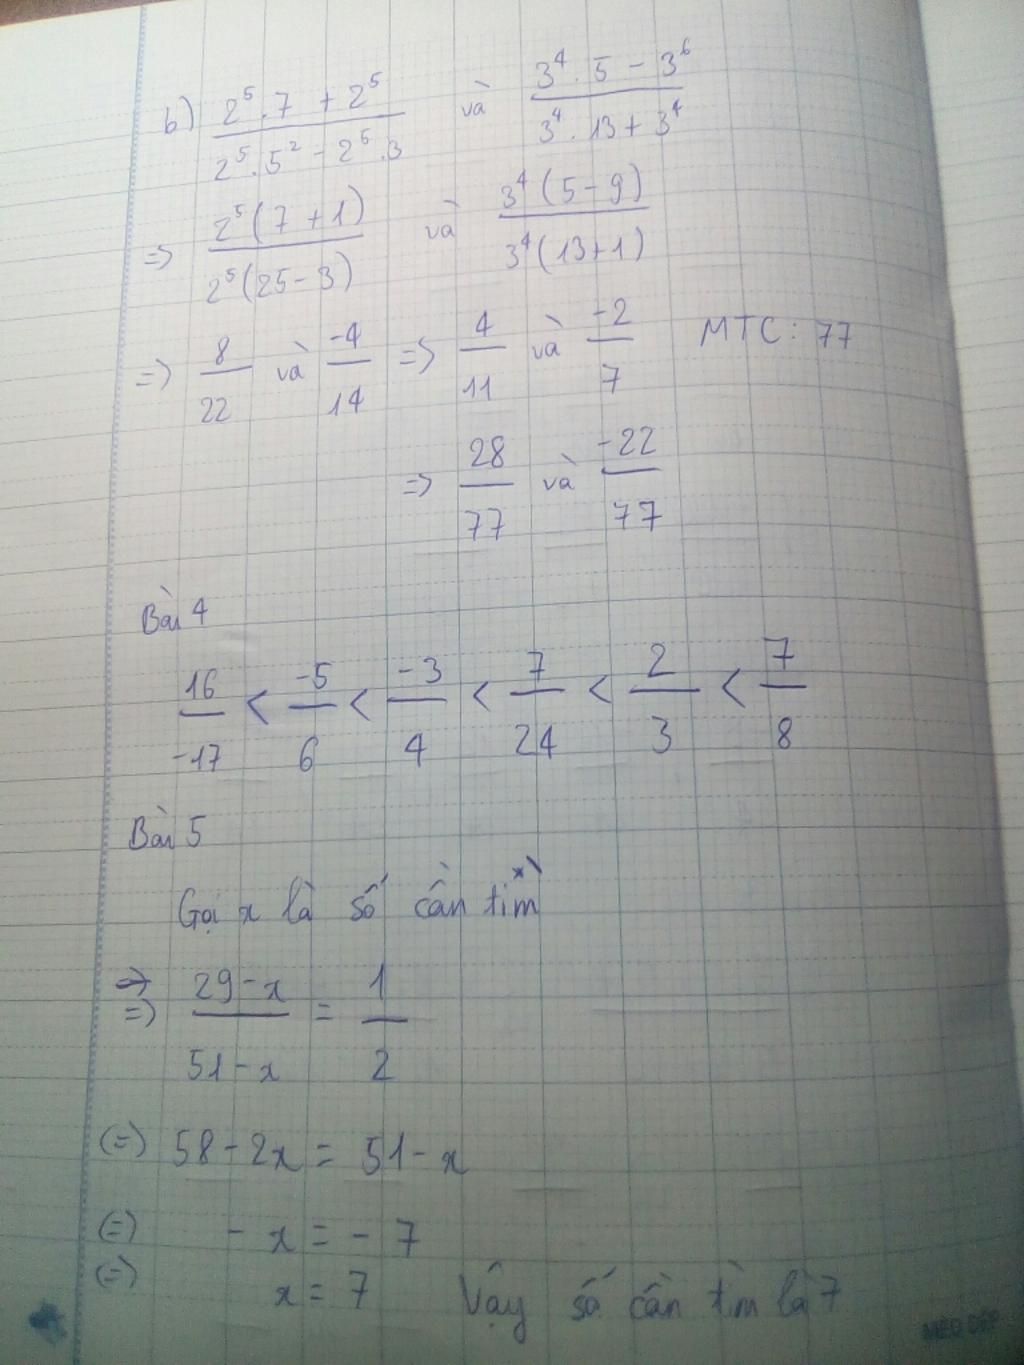 b) (2^5 . 7 + 2^5)/(2^5 . 5^2 - 2^5 . 3) và (3^4 . 5 - 3^6)/(3^4 . 13 + 3^4)
=> 2^5(7 + 1)/2^5(25 - 3) và 3^4(5 - 9)/3^4(13 + 1)
=> 8/22 và -4/14 => 4/11 và -2/7 MTC: 77
=> 28/77 và -22/77
Bài 4
16/-17 < -5/6 < -3/4 < 7/24 < 2/3 < 7/8
Bài 5
Gọi x là số cần tìm
=> (29 - x)/(51 - x) = 1/2
(=) 58 - 2x = 51 - x
(=) - x = - 7
(=) x = 7 Vậy số cần tìm là 7